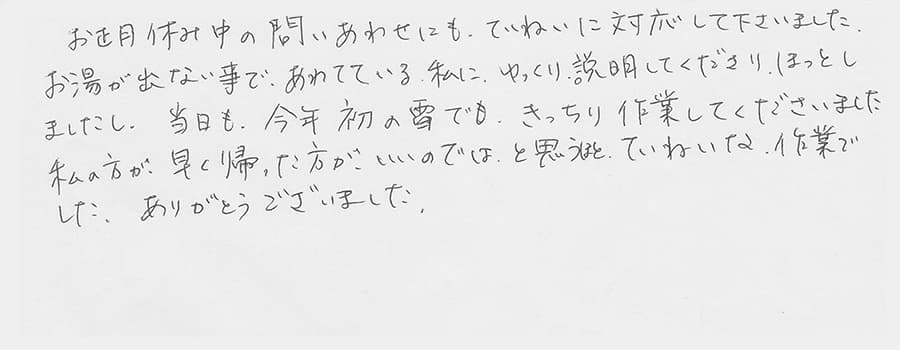 お正月休み中の問いあわせにも、ていねいに対応して下さいました。
お湯が出ない事で、あわてている、私に、ゆっくり、説明してくださり、ほっとし
ましたし、当日も、今年初の雪でも、きっちり作業してくださいました
私の方が、早く帰った方が、いいのでは、と思うほど、ていねいな、作業で
した。ありがとうございました。